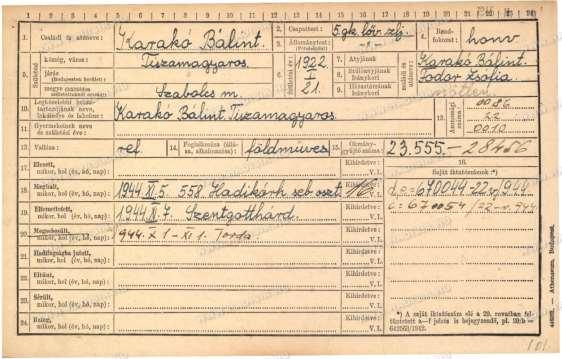 1 2 3 4 5 6 7 8 9 10 11 12 13 14 15 16 17 18 19 20 21 22 23 24
1. Család és utóneve: Karakó Bálint.
2. Csapattest: 5. gk. löv. zlj.
3. Állományteste:
4. Rendfokozat: honv
5. Született
község, város: Tiszamagyaros.
járás
megye
Szabolcs m.
6. Született év, hó, nap: 1922. I. 21.
7. Atyjának
8. Szülőanyjának leánykori
9. Házastársának leánykori
családi és utóneve
Karakó Bálint.
Fodor Zsófia
nőtlen
10. Legközelebbi hozzátartozójának neve, lakóhelye és lakcíme: Karakó Bálint. Tiszamagyaros.
11. Gyermekeinek neve és születési éve:
12. Azonossági száma: 0086
22
0010
13. Vallása: ref.
14. földműves
15. Okmánygyűjtő száma: 23.555.-28486
16. Saját iktatószáma *)
17. Elesett, mikor, hol (év, hó, nap): Kihirdetve: V. I.
18. Meghalt, mikor, hol (év, hó, nap): 1944. XI. 5. 558 Hadikórh. seb. oszt. Kihirdetve: V. I.
d.c=670044-22.v/944
19. Eltemettetett, mikor, hol (év, hó, nap): 1944. XI. 7. Szentgotthárd. Kihirdetve: V. I.
c=670054/22-v.944
20. Megsebesült, mikor, hol (év, hó, nap): 944. X 1 - XI 1. Torda Kihirdetve: V. I.
21. Hadifogságba jutott, mikor, hol (év, hó, nap): Kihirdetve: V. I.
22. Eltűnt, mikor, hol (év, hó, nap): Kihirdetve: V. I.
23. Sérült, mikor, hol (év, hó, nap): Kihirdetve: V. I.
24. Beteg, mikor, hol (év, hó, nap): Kihirdetve: V. I.
*) A saját iktatószám elé a 29. rovatban feltüntetett a—f jelzés is bejegyzendő, pl. 19/b — 642563/1942.
Athenaeum, Budapest.